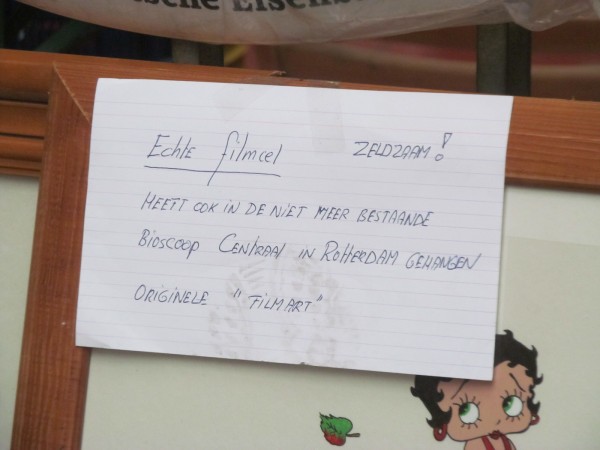 ische Eisenb
Echte filmcel ZELDZAAM!
HEEFT OOK IN DE NIET MEER BESTAANDE
BIOSCOOP CENTRAAL IN ROTTERDAM GEHANGEN
ORIGINELE "FILMART"